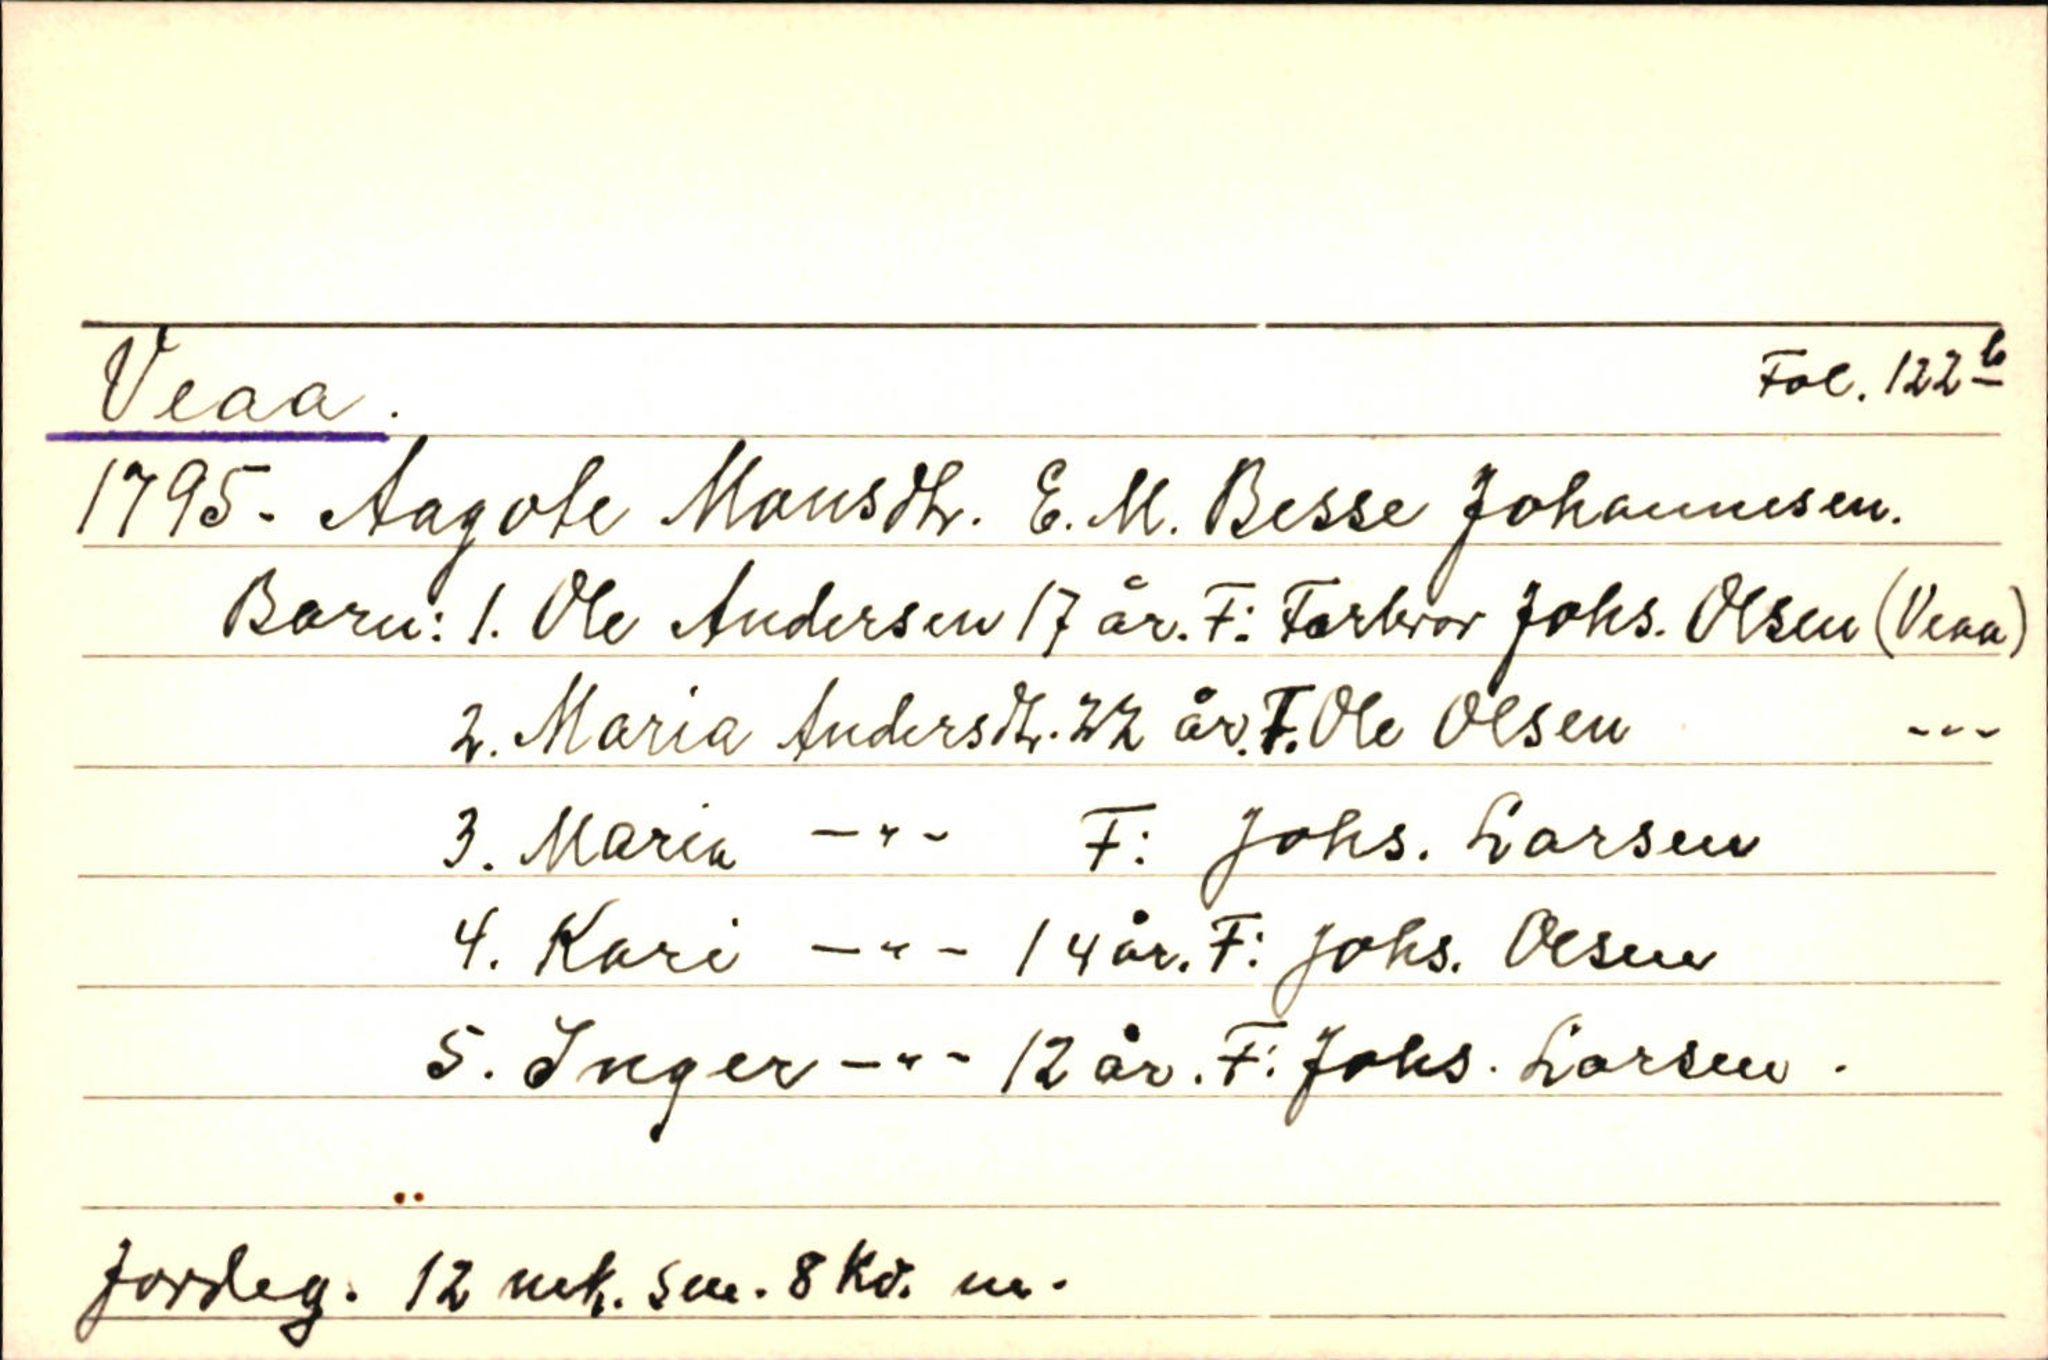 Veaa. Fol. 122b
1795. Aagote Monsdtr. E. M. Besse Johannesen.
Born: 1. Ole Andersen 17 år. F: Farbror Johs. Olsen (Veaa)
2. Maria Andersdtr. 22 år. F. Ole Olsen ---
3. Maria -"- F: Johs. Larsen
4. Kari -"- 14 år. F: Johs. Olsen
5. Inger -"- 12 år. F: Johs. Larsen.
Jordeg. 12 mk. sm. 8 Kd. m.